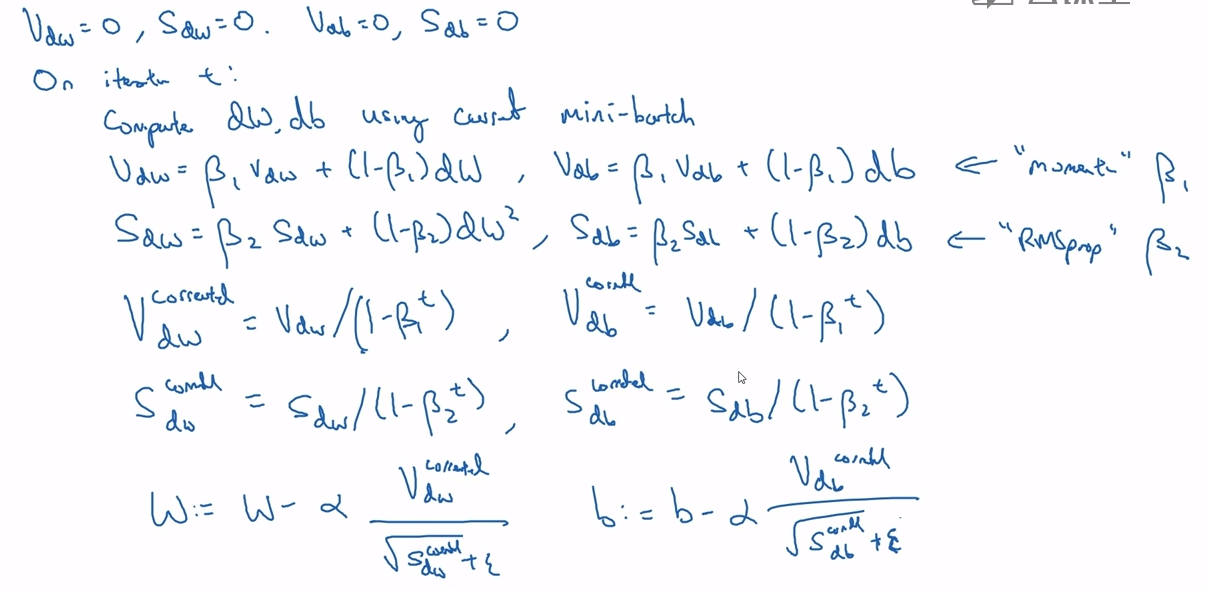 V_dw = 0, S_dw = 0. V_db = 0, S_db = 0
On iteration t:
Compute dW, db using current mini-batch
V_dw = β₁ V_dw + (1-β₁) dW , V_db = β₁ V_db + (1-β₁) db ← "moment" β₁
S_dw = β₂ S_dw + (1-β₂) dW² , S_db = β₂ S_db + (1-β₂) db ← "RMSprop" β₂
V_dw^corrected = V_dw/(1-β₁^t) , V_db^corrected = V_db/(1-β₁^t)
S_dw^corrected = S_dw/(1-β₂^t) , S_db^corrected = S_db/(1-β₂^t)
W := W - α V_dw^corrected / (√S_dw^corrected + ε) b := b - α V_db^corrected / (√S_db^corrected + ε)